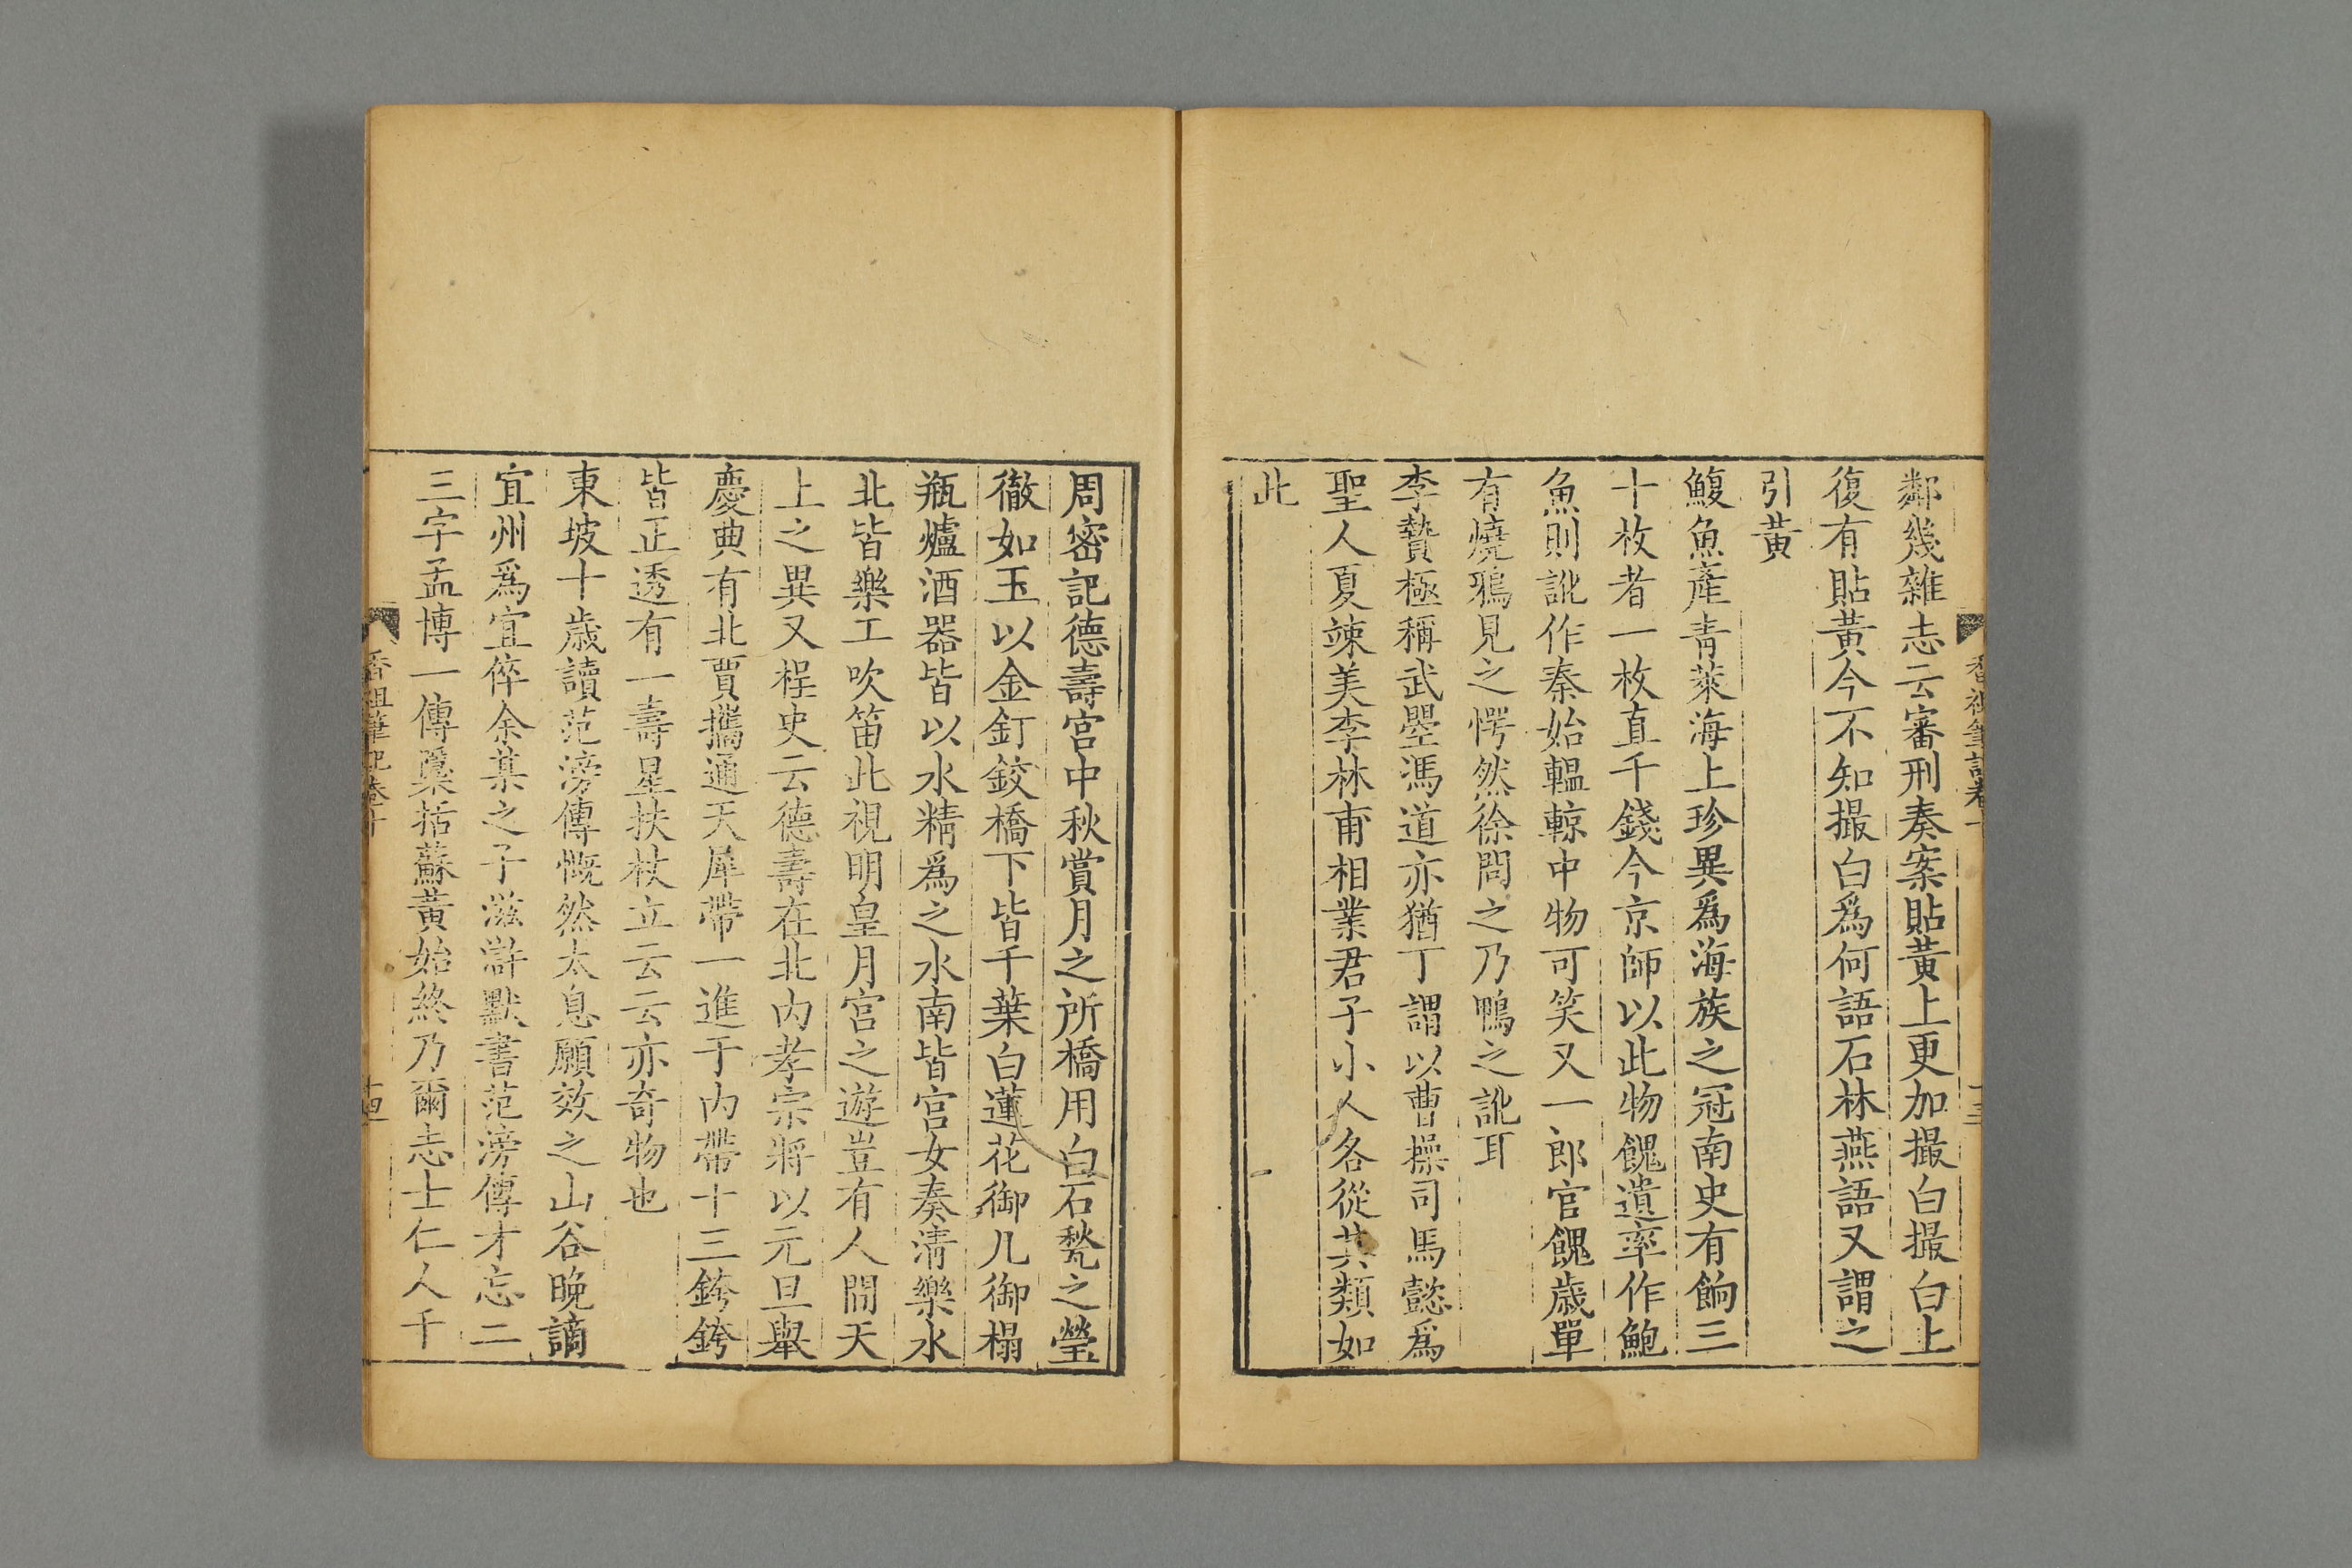 鄰幾雜志云審刑奏案貼黃上更加撮白撮白上
復有貼黃今不知撮白爲何語石林燕語又謂之
引黃
鰒魚產青萊海上珍異爲海族之冠南史有餉三
十枚者一枚直千錢今京師以此物餽遺率作鮑
魚則訛作秦始轀輬中物可笑又一郎官餽歲單
有燒鴉見之愕然徐問之乃鴨之訛耳
李贄極稱武曌馮道亦猶丁謂以曹操司馬懿爲
聖人夏竦美李林甫相業君子小人各從其類如
此
周密記德壽宮中秋賞月之所橋用白石甃之瑩
徹如玉以金釘鉸橋下皆千葉白蓮花御几御榻
瓶爐酒器皆以水精爲之水南皆宮女奏清樂水
北皆樂工吹笛此視明皇月宮之遊豈有人間天
上之異又桯史云德壽在北內孝宗將以元旦舉
慶典有北賈攜通天犀帶一進于內帶十三銙銙
皆正透有一壽星扶杖立云云亦奇物也
東坡十歲讀范滂傳慨然太息願效之山谷晚謫
宜州爲宜倅余某之子滋滸默書范滂傳才忘二
三字孟博一傳檃括蘇黃始終乃爾志士仁人千
香祖筆記卷十
十四